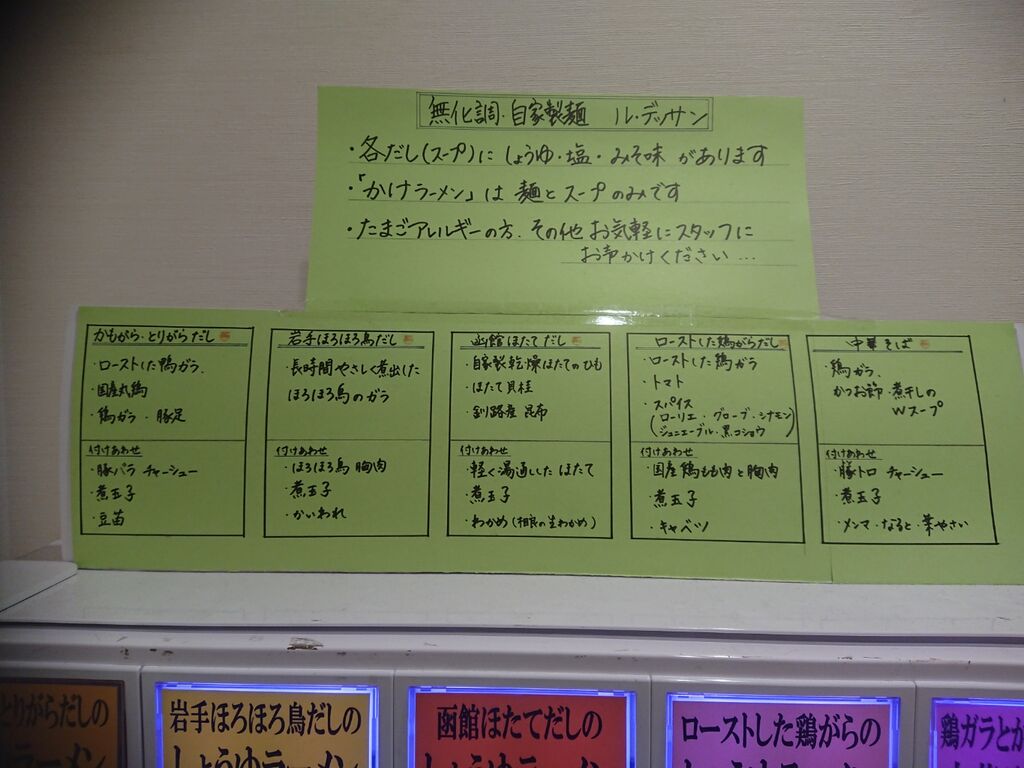 無化調・自家製麺 ル・デッサン
・各だし(スープ)にしょうゆ・塩・みそ味があります
・「かけラーメン」は麺とスープのみです
・たまごアレルギーの方、その他お気軽にスタッフに
お声かけください…
かもがら・とりがらだし
・ローストした鴨ガラ、
・国産丸鶏
・鶏ガラ・豚足
付けあわせ
・豚バラチャーシュー
・煮玉子
・豆苗
岩手ほろほろ鳥だし
・長時間やさしく煮出した
ほろほろ鳥のガラ
付けあわせ
・ほろほろ鳥胸肉
・煮玉子
・かいわれ
函館ほたてだし
・自家製乾燥ほたてのひも
・ほたて貝柱
・釧路産昆布
付けあわせ
・軽く湯通しした ほたて
・煮玉子
・わかめ(相良の生わかめ)
ローストした鶏がらだし
・ローストした鶏ガラ
・トマト
・スパイス
(ローリエ・グローブ・シナモン
ジュニエーブル・黒コショウ)
付けあわせ
・国産鶏もも肉と胸肉
・煮玉子
・キャベツ
中華そば
・鶏ガラ、
かつお節・煮干しの
Wスープ
付けあわせ
・豚トロ チャーシュー
・煮玉子
・メンマ・なると・葉やさい
とりがらだしの
ラーメン
岩手ほろほろ鳥だしの
しょうゆラーメン
函館ほたてだしの
しょうゆラーメン
ローストした鶏がらの
しょうゆラーメン
鶏ガラとか